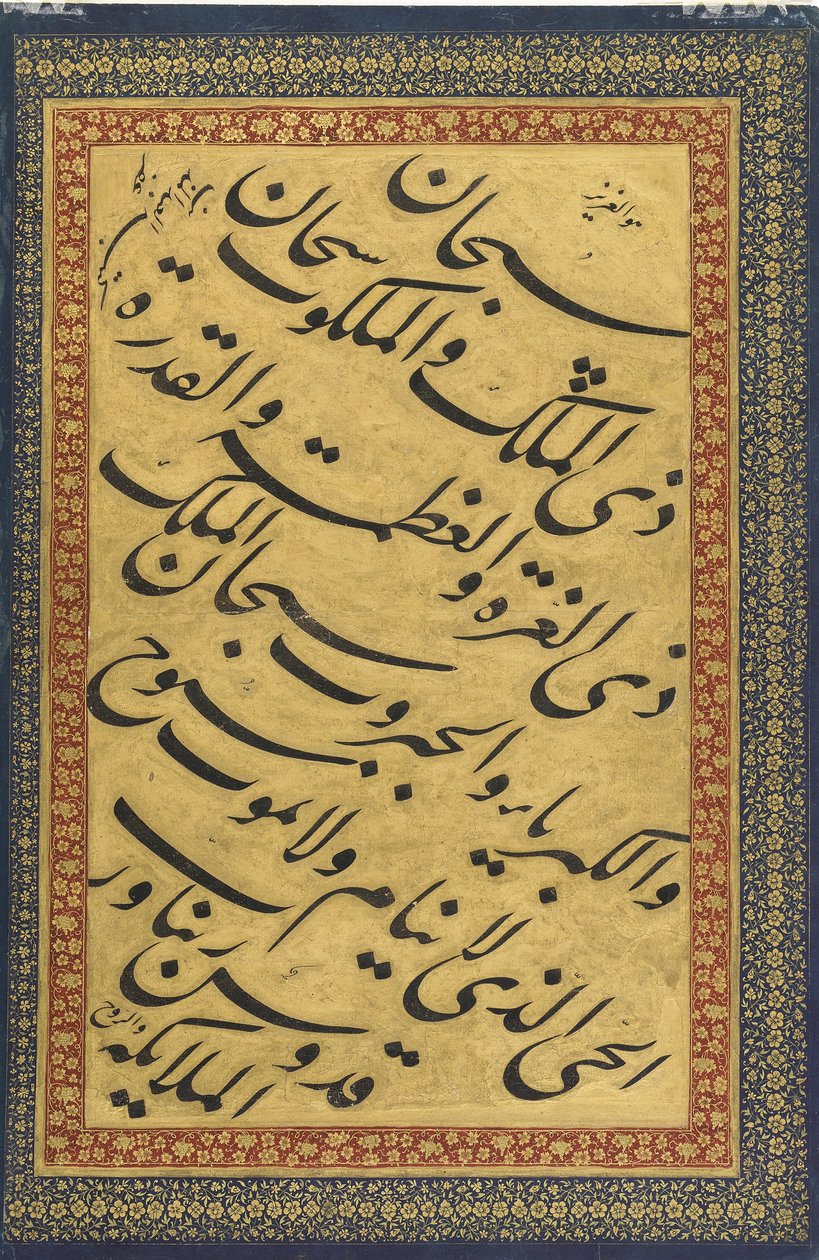 هو العزيز
سبحان
ذی الملک والملکوت سبحان
ذی العزة والعظمة والقدرة
والکبریاء والجبروت سبحان الملک
الحی الذی لا ینام ولا یموت سبوح
قدوس ربنا ورب
الملایکه والروح